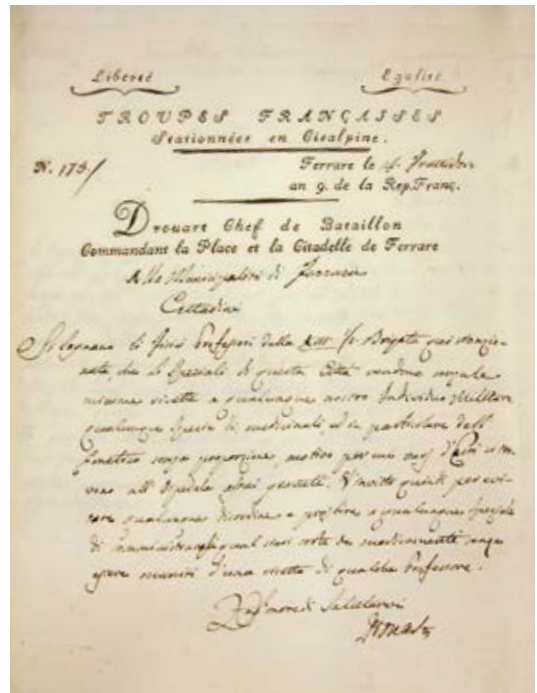 Liberté Egalité
TROUPES FRANÇAISES
Stationnées en Cisalpine.
N. 175/ Ferrare le Fructidor
an 9. de la Rep. Franç.
Drouart Chef de Bataillon
Commandant la Place et la Citadelle de Ferrare
Alla Municipalità di Ferrara
Cittadini
Si lagnano li Professori della Brigata qui stanzio-
nata, che li Speziali di questa Città vendono
minima ricetta a qualunque nostro Individuo Militare
qualunque specie di medicinali, ed in particolare dell'
senza proporzione, motivo per cui
all'Ospedale V'invito quindi per evi-
tare qualunque disordine a proibire a qualunque Speziale
di qual siasi sorte de medicamenti senza
essere muniti d'una ricetta di qualche Professore.
Ho l'onore di Salutarvi